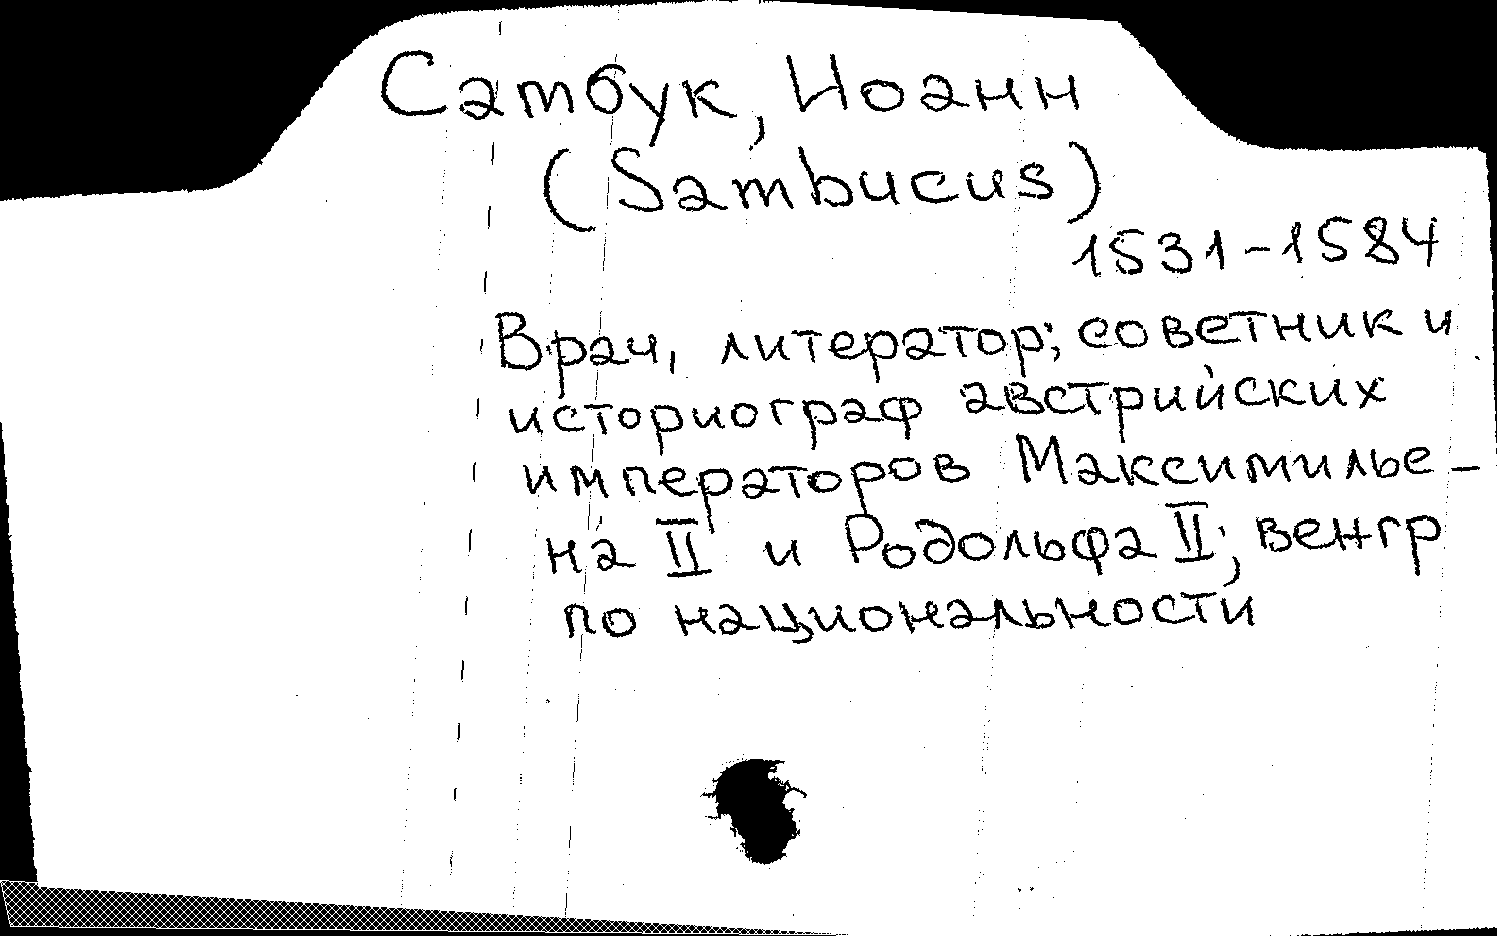 Самбук, Иоанн
(Sambucus)
1531-1584
Врач, литератор; советник и
историограф австрийских
императоров Максимилье-
на II и Родольфа II; венгр
по национальности